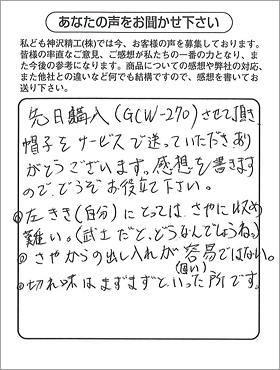 あなたの声をお聞かせ下さい
私ども神沢精工(株)では今、お客様の声を募集しております。
皆様の率直なご意見、ご感想が私たちの一番の力となり、ま
た今後の参考になります。商品についての感想や弊社の対応、
また他社との違いなど何でも結構ですので、感想を書いてお
送り下さい。
先日購入(GCW-270)させて頂き
帽子をサービスで送っていただきあり
がとうございます。感想を書きます
ので、どうぞお役立て下さい。
①左きき(自分)にとっては、さやに収め
難い。(武士だと、どうなんでしょうね。)
②さやからの出し入れが容易ではない。
(固い)
③切れ味はまずまずといった所です。